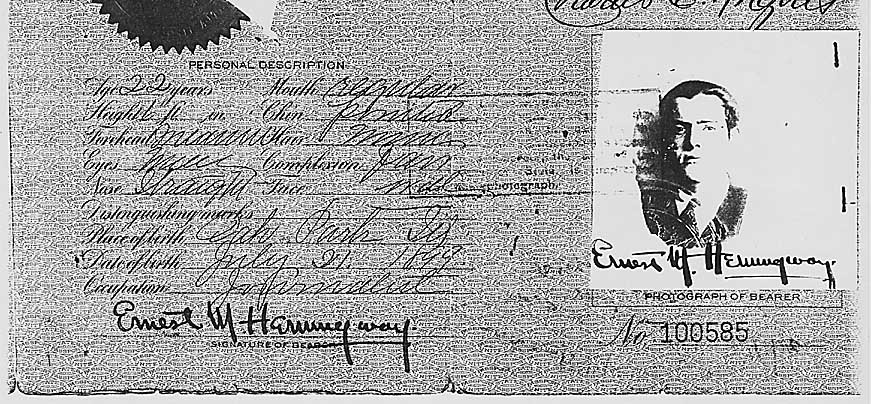 Charles E. Hughes
PERSONAL DESCRIPTION
Age 22 years Mouth regular
Height 6 ft. in. Chin pointed
Forehead medium Hair brown
Eyes brown Complexion fair
Nose straight Face oval
photograph.
Distinguishing marks
Place of birth Oak Park Ill
Date of birth July 21 1899
Occupation Journalist
Ernest M Hemingway
SIGNATURE OF BEARER
Ernest M. Hemingway.
PHOTOGRAPH OF BEARER
No. 100585